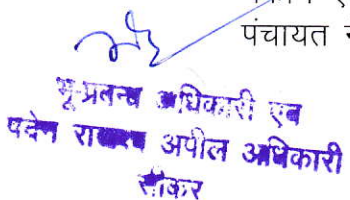 पंचायत
भू-प्रबन्ध अधिकारी एवं
पदेन राजस्व अपील अधिकारी
सीकर